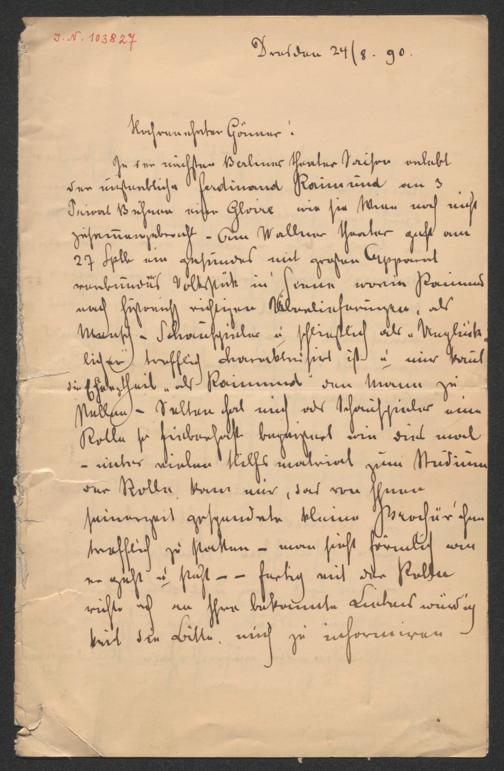 I. N. 103827
Dresden 24/8. 90.
Hochverehrter Gönner!
In der nächsten Berliner Theater Saison erlebt
der unsterbliche Ferdinand Raimund an 3
Privat Bühnen eine Gloire wie sie Wien noch nicht
zusammengebracht – Am Wallner Theater geht am
27 Sept ein gesundes mit großem Apparat
Volksstück in Scene worin Raimund
nach historisch richtigen Überlieferungen, als
Mensch – Schauspieler u schließlich als "Unglück
licher" trefflich charakterisirt ist u mir kam
die zutheil "als Raimund" den Mann zu
stellen – Selten hat mich als Schauspieler eine
Rolle so fieberhaft begeistert wie dies mal
– unter vielen Hilfsmaterial zum Studium
der Rolle, kam mir, das von Ihnen
seinerzeit gespendete kleine Brochür'chen
trefflich zu statten – man sieht förmlich wie
er geht u steht – – fertig mit der Rolle
richte ich an Ihre bekannte Liebenswürdig
keit die Bitte, mich zu informiren